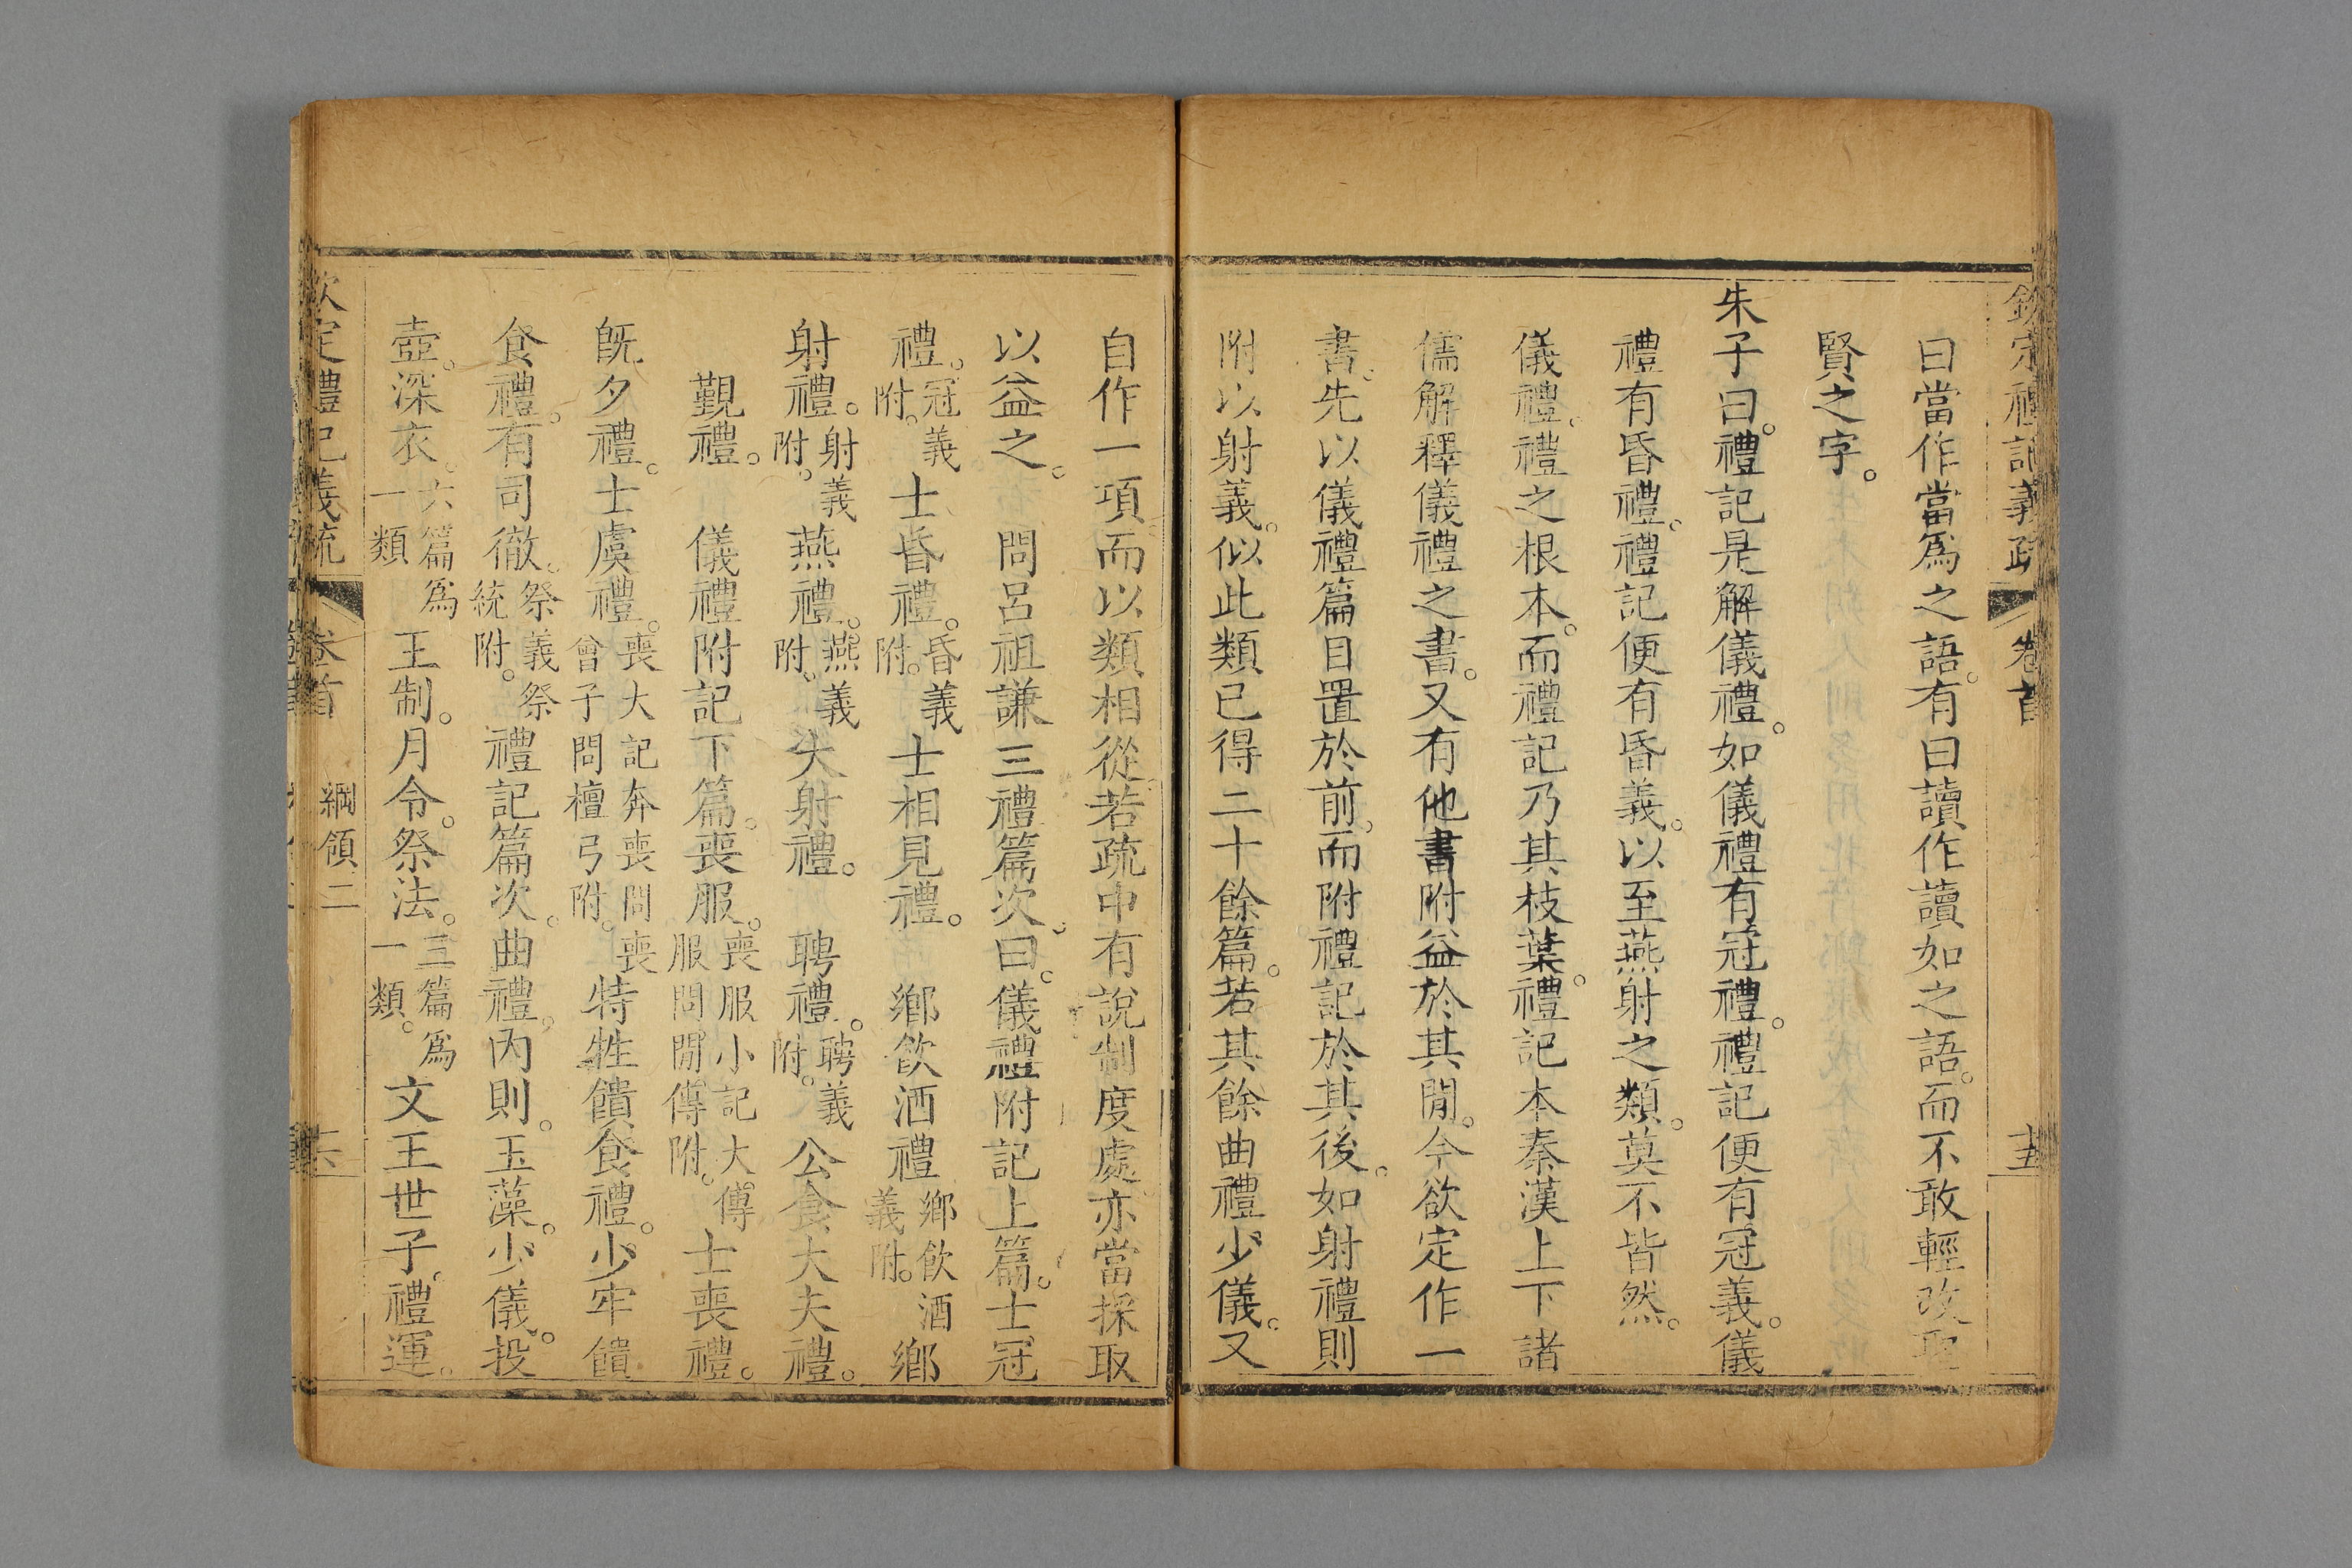 欽定禮記義疏 卷首 十五
曰當作當爲之語。有曰讀作讀如之語。而不敢輕改聖
賢之字。
朱子曰。禮記是解儀禮。如儀禮有冠禮。禮記便有冠義。儀
禮有昏禮。禮記便有昏義。以至燕射之類。莫不皆然。
儀禮。禮之根本。而禮記乃其枝葉。禮記本秦漢上下諸
儒解釋儀禮之書。又有他書附益於其間。今欲定作一
書。先以儀禮篇目置於前。而附禮記於其後。如射禮則
附以射義。似此類已得二十餘篇。若其餘曲禮少儀。又
自作一項而以類相從。若疏中有說制度處。亦當採取
以益之。 問呂祖謙三禮篇次。曰。儀禮附記上篇。士冠
禮。冠義附。 士昏禮。昏義附。 士相見禮。 鄉飲酒禮 鄉飲酒義附。 鄉
射禮。射義附。 燕禮。燕義附。 大射禮。 聘禮。聘義附。 公食大夫禮。
覲禮。 儀禮附記下篇。喪服。喪服小記大傳服問閒傳附。 士喪禮。
旣夕禮。士虞禮。喪大記奔喪問喪曾子問檀弓附。 特牲饋食禮。少牢饋
食禮。有司徹。祭義祭統附。 禮記篇次。曲禮。內則。玉藻。少儀。投
壺。深衣。六篇爲一類 王制。月令。祭法。三篇爲一類。 文王世子。禮運。
欽定禮記義疏 卷首 綱領二 十六